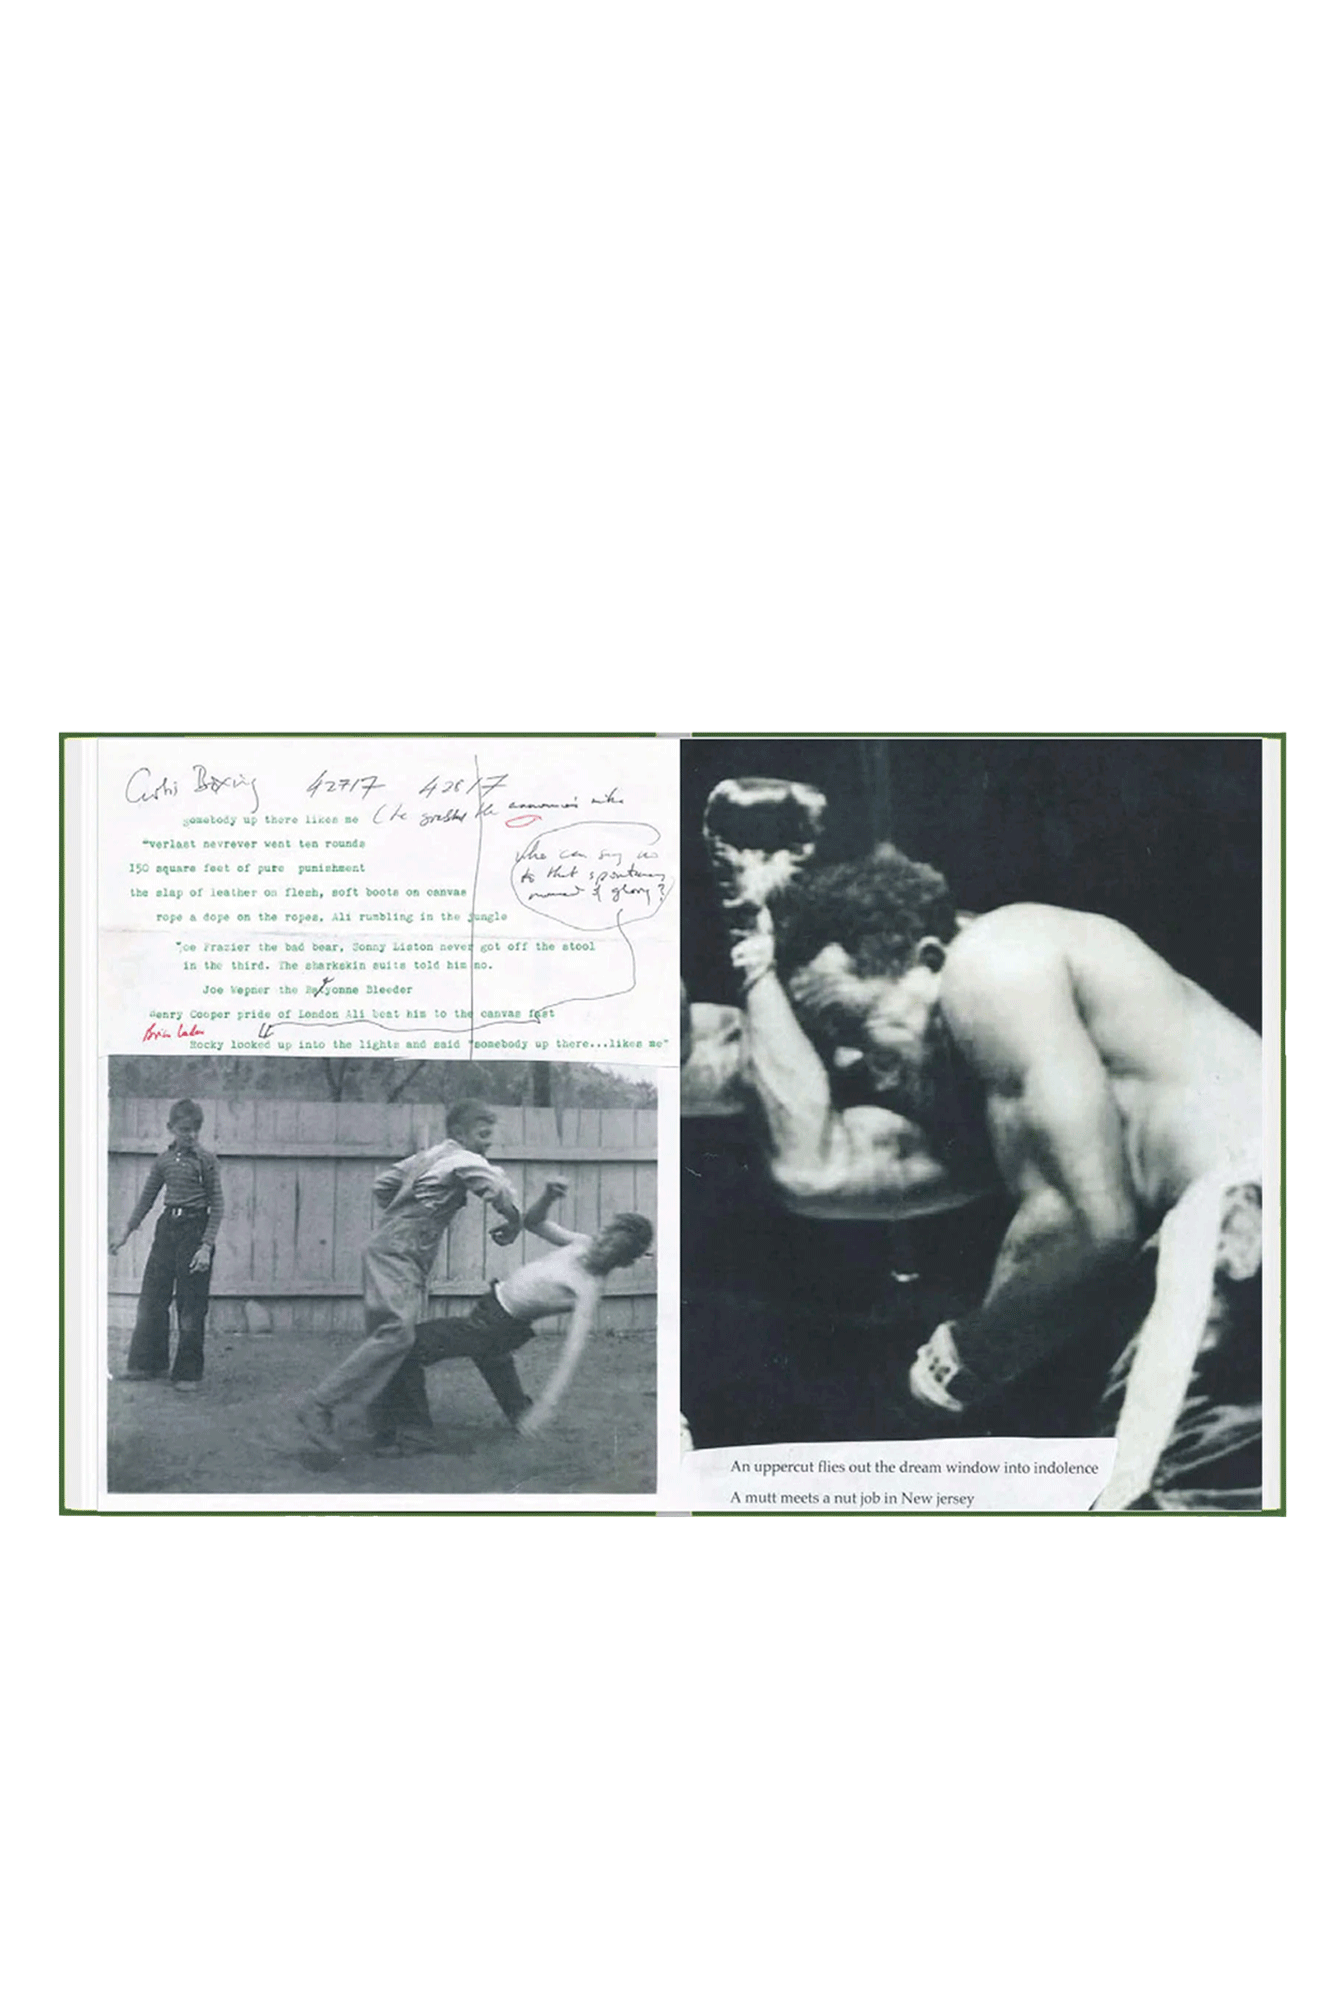 Curtis Boxing 42717 42817
somebody up there likes me (he grabbed the announcer's mike
"verlast nevrever went ten rounds
who can say no
to that spontaneous
moment of glory?
150 square feet of pure punishment
the slap of leather on flesh, soft boots on canvas
rope a dope on the ropes, Ali rumbling in the jungle
Joe Frazier the bad bear, Sonny Liston never got off the stool
in the third. The sharkskin suits told him no.
Joe Wepner the Bayonne Bleeder
Henry Cooper pride of London Ali beat him to the canvas fast
Rocky looked up into the lights and said "somebody up there...likes me"
An uppercut flies out the dream window into indolence
A mutt meets a nut job in New jersey